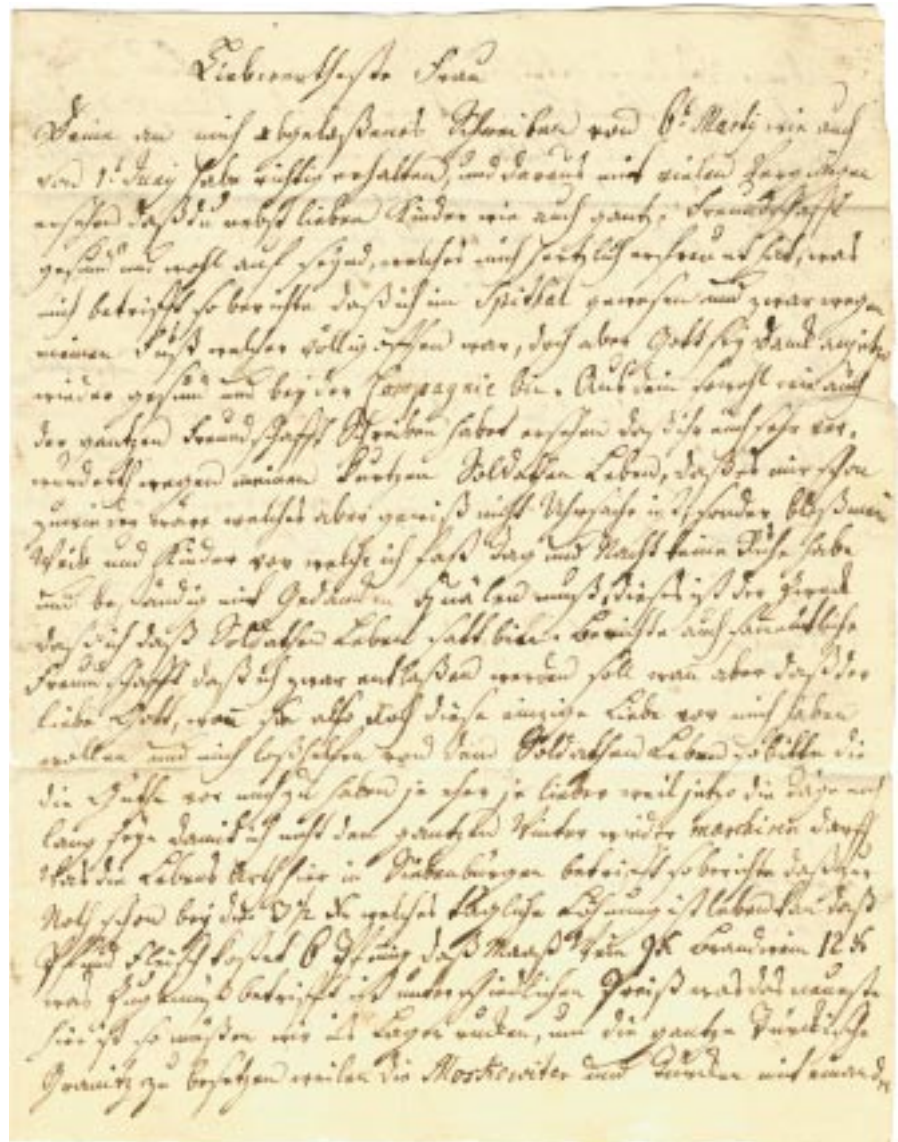 Liebwertheste Frau
Deine an mich abgelaßenes Schreiben von 6t Marty wie auch
von 1t Juny habe richtig erhalten, und daraus mit vielen Vergnügen
ersehen daß du nebst lieben Kinder wie auch gantze Freundschafft
gesund und wohl auf seynd, welches mich hertzlich erfreuet hat, was
mich betrifft so berichte daß ich im Spithal gewesen und zwar wegen
meinen Fuß welcher völlig offen war, doch aber Gott sey Danck anjetzo
wieder gesund und bey der Compagnie bin. Aus dein sowohl wie auch
der gantzen Freundschafft Schreiben habe ersehen daß ihr euch sehr ver-
wundert wegen meinen kurtzen Soldathen Leben, daß es mir schon
zuwieder wäre welches aber gewiß nicht Uhrsache ist, sonder bloß mein
Weib und Kinder vor welche ich fast Tag und Nacht keine Ruhe habe
und beständig mit Gedancken quälen muß, dieses ist der Zweck
daß ich daß Soldathen Leben satt bin. Berichte auch sammentliche
Freundschafft daß ich zwar entlaßen werden soll wan aber daß der
liebe Gott, wan sie also doch diese einzige Liebe vor mich haben
wollen und mich loßhelfen von dem Soldathen Leben so bitte die
die Güthe vor mich zu haben je eher je lieber weil jetzo die Täge noch
lang seyn damit ich nicht den gantzen Winter wieder marchiren darff
Was die Lebens Arth hier in Siebenbürgen betrifft so berichte daß zur
Noth schon bey die 3 1/2 Xr welches tägliche Löhnung ist leben kan daß
Pfund Fleisch kostet 6 Pfenig daß Maaß Wein 9 Xr Brandwein 12 Xr
was Zugemüß betrifft ist unterschiedlichen Preiß was das neueste
hier ist so müßen wir ins Lager rucken, um die gantze Türckische
Granitz zu besetzen weilen die Moskowiter und Türcken mit einander